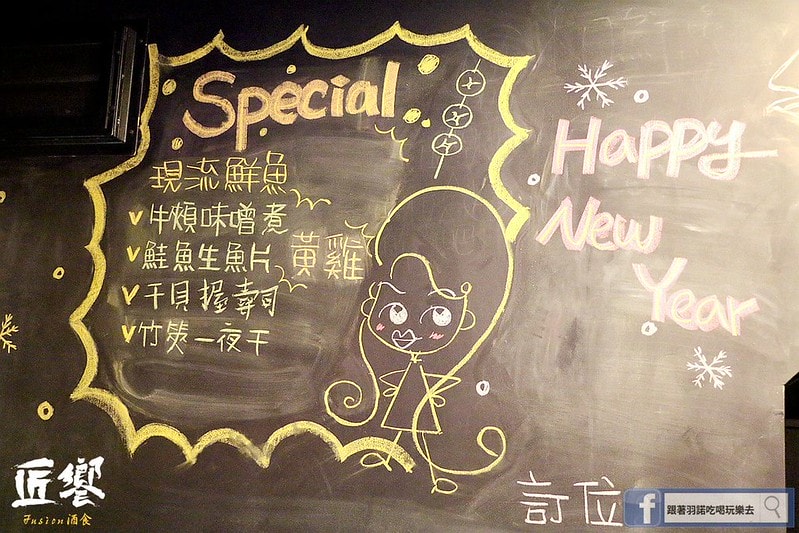 Special
現流鮮魚
v 牛頰味噌煮
v 鮭魚生魚片 黃雞
v 干貝握壽司
v 竹筴一夜干
Happy
New
Year
訂位
匠饗
Fusion酒食
跟著羽諾吃喝玩樂去